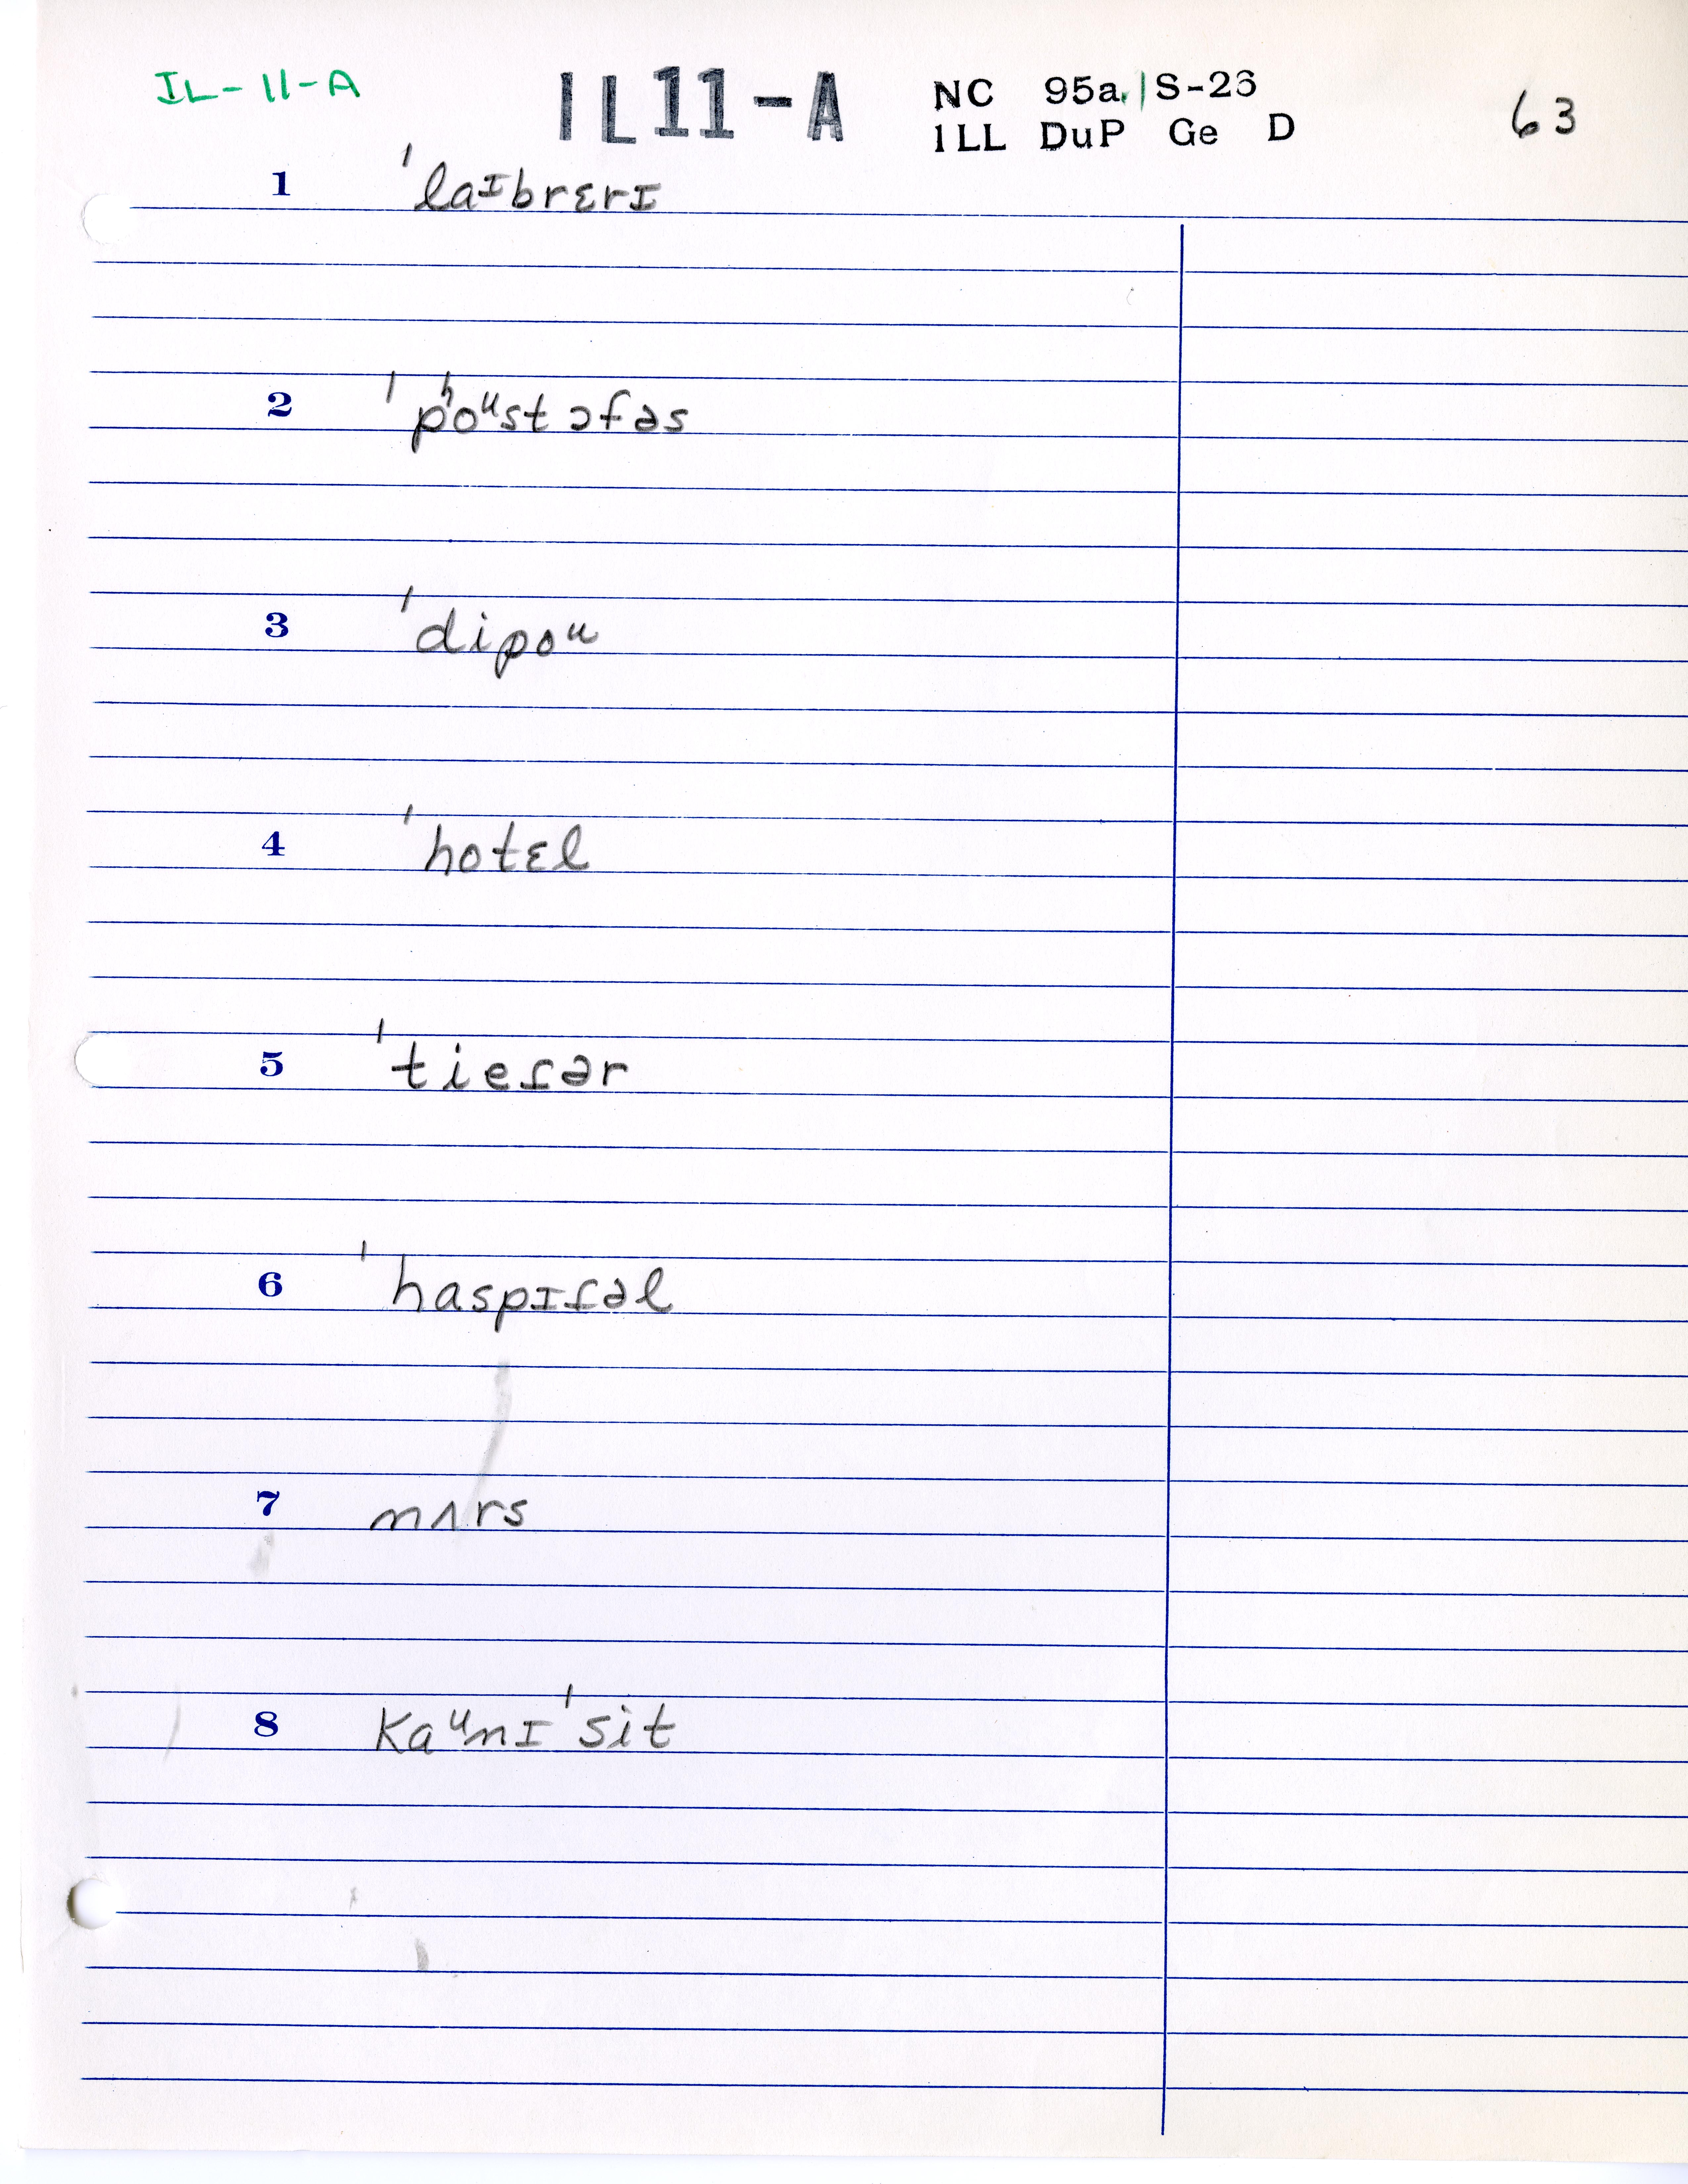 IL-11-A IL11-A NC 95a. S-23 63
ILL DuP Ge D
1 ˈlaᶦbrɛrɪ
2 ˈpʰoᵘst ɔfəs
3 ˈdipoᵘ
4 ˈhotɛl
5 ˈtieɾər
6 ˈhaspɪɾəl
7 nʌrs
8 kaᵘnɪˈsit